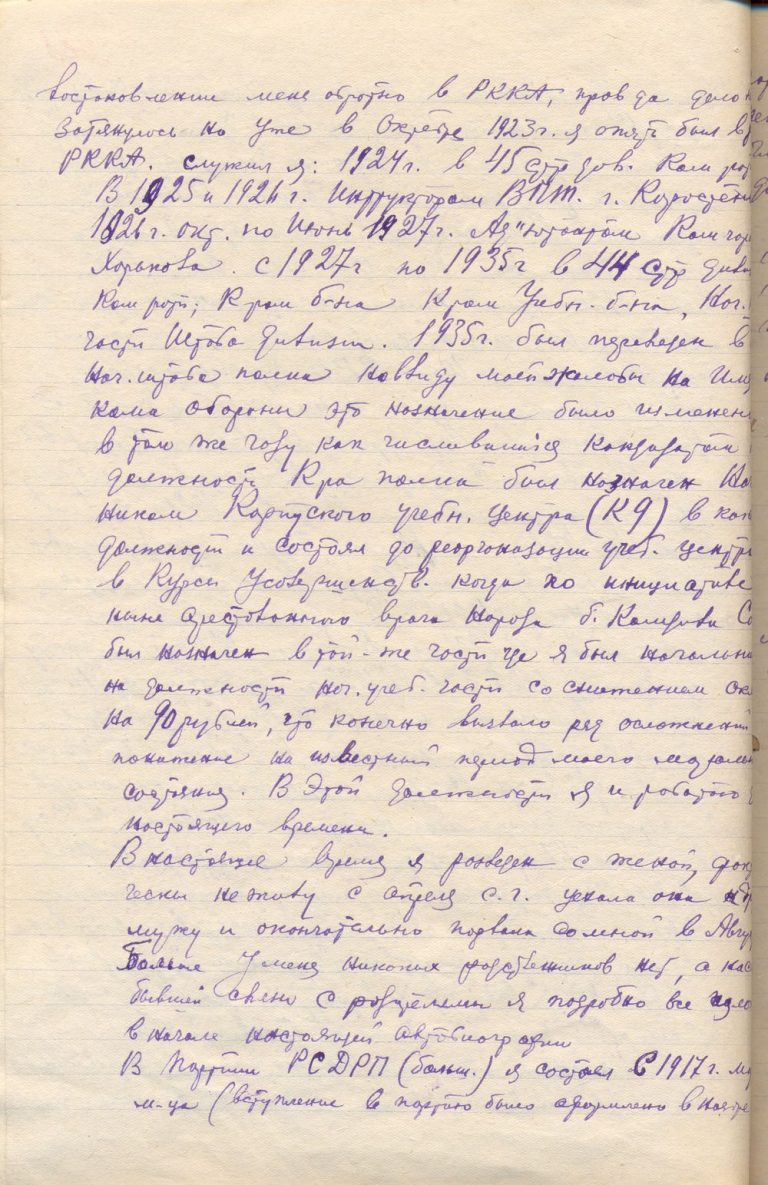 востоновлении меня обротно в РККА, правда дело
Затянулось но уже в Октебре 1923г. я опять был в
РККА. служил я: 1924г. в 45 стр див. Ком рот
В 1925 и 1926 г. Инструктором ВПШ. г. Коростень
1926 г. окт. по Июнь 1927г. Ад"ютантом Ком гор
Харькова. с 1927г по 1935г в 44 стр диви
Ком роты; К ром б-на К ром Учебн. б-на, Нач.
части Штоба дивизии. 1935г. был переведен в
Нач. штоба полка но ввиду моей жалобы на Имя
кома Обороны это назначение было изменен
в том же году как числившийся кандидатом
должности К-ра полка был назначен На
ником учебн. Центра (К9) в
должности и состоял до реоргонизации учеб. центра
в Курсы Усовершенств. когда по инициативе
ныне арестованного врага народа б.
был назначен в той-же части где я был начальни
на должности нач. учеб. части со снижением ок
на 90 рублей, что конечно вызвало ряд осложнений
понижение на известный период моего
состояния. В Этой должности я и работаю
настоящего времени.
В настоящее время я разведен с женой, фак
чески не живу с апреля с.г. уехала она
мужу и окончательно порвала со мной в Авгу
Больше У меня никаких родственников нет, а кас
бывшей связи с родителями я подробно все изло
в начале настоящей автобиографии
В Партии РСДРП (больш.) я состоял с 1917г.
м-ца (вступление в партию было оформлено в Ноябре